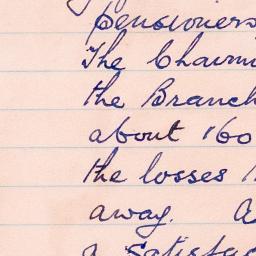 pensioners
The Chairm
the Branch
about 160
the losses
away. A
a satisfac